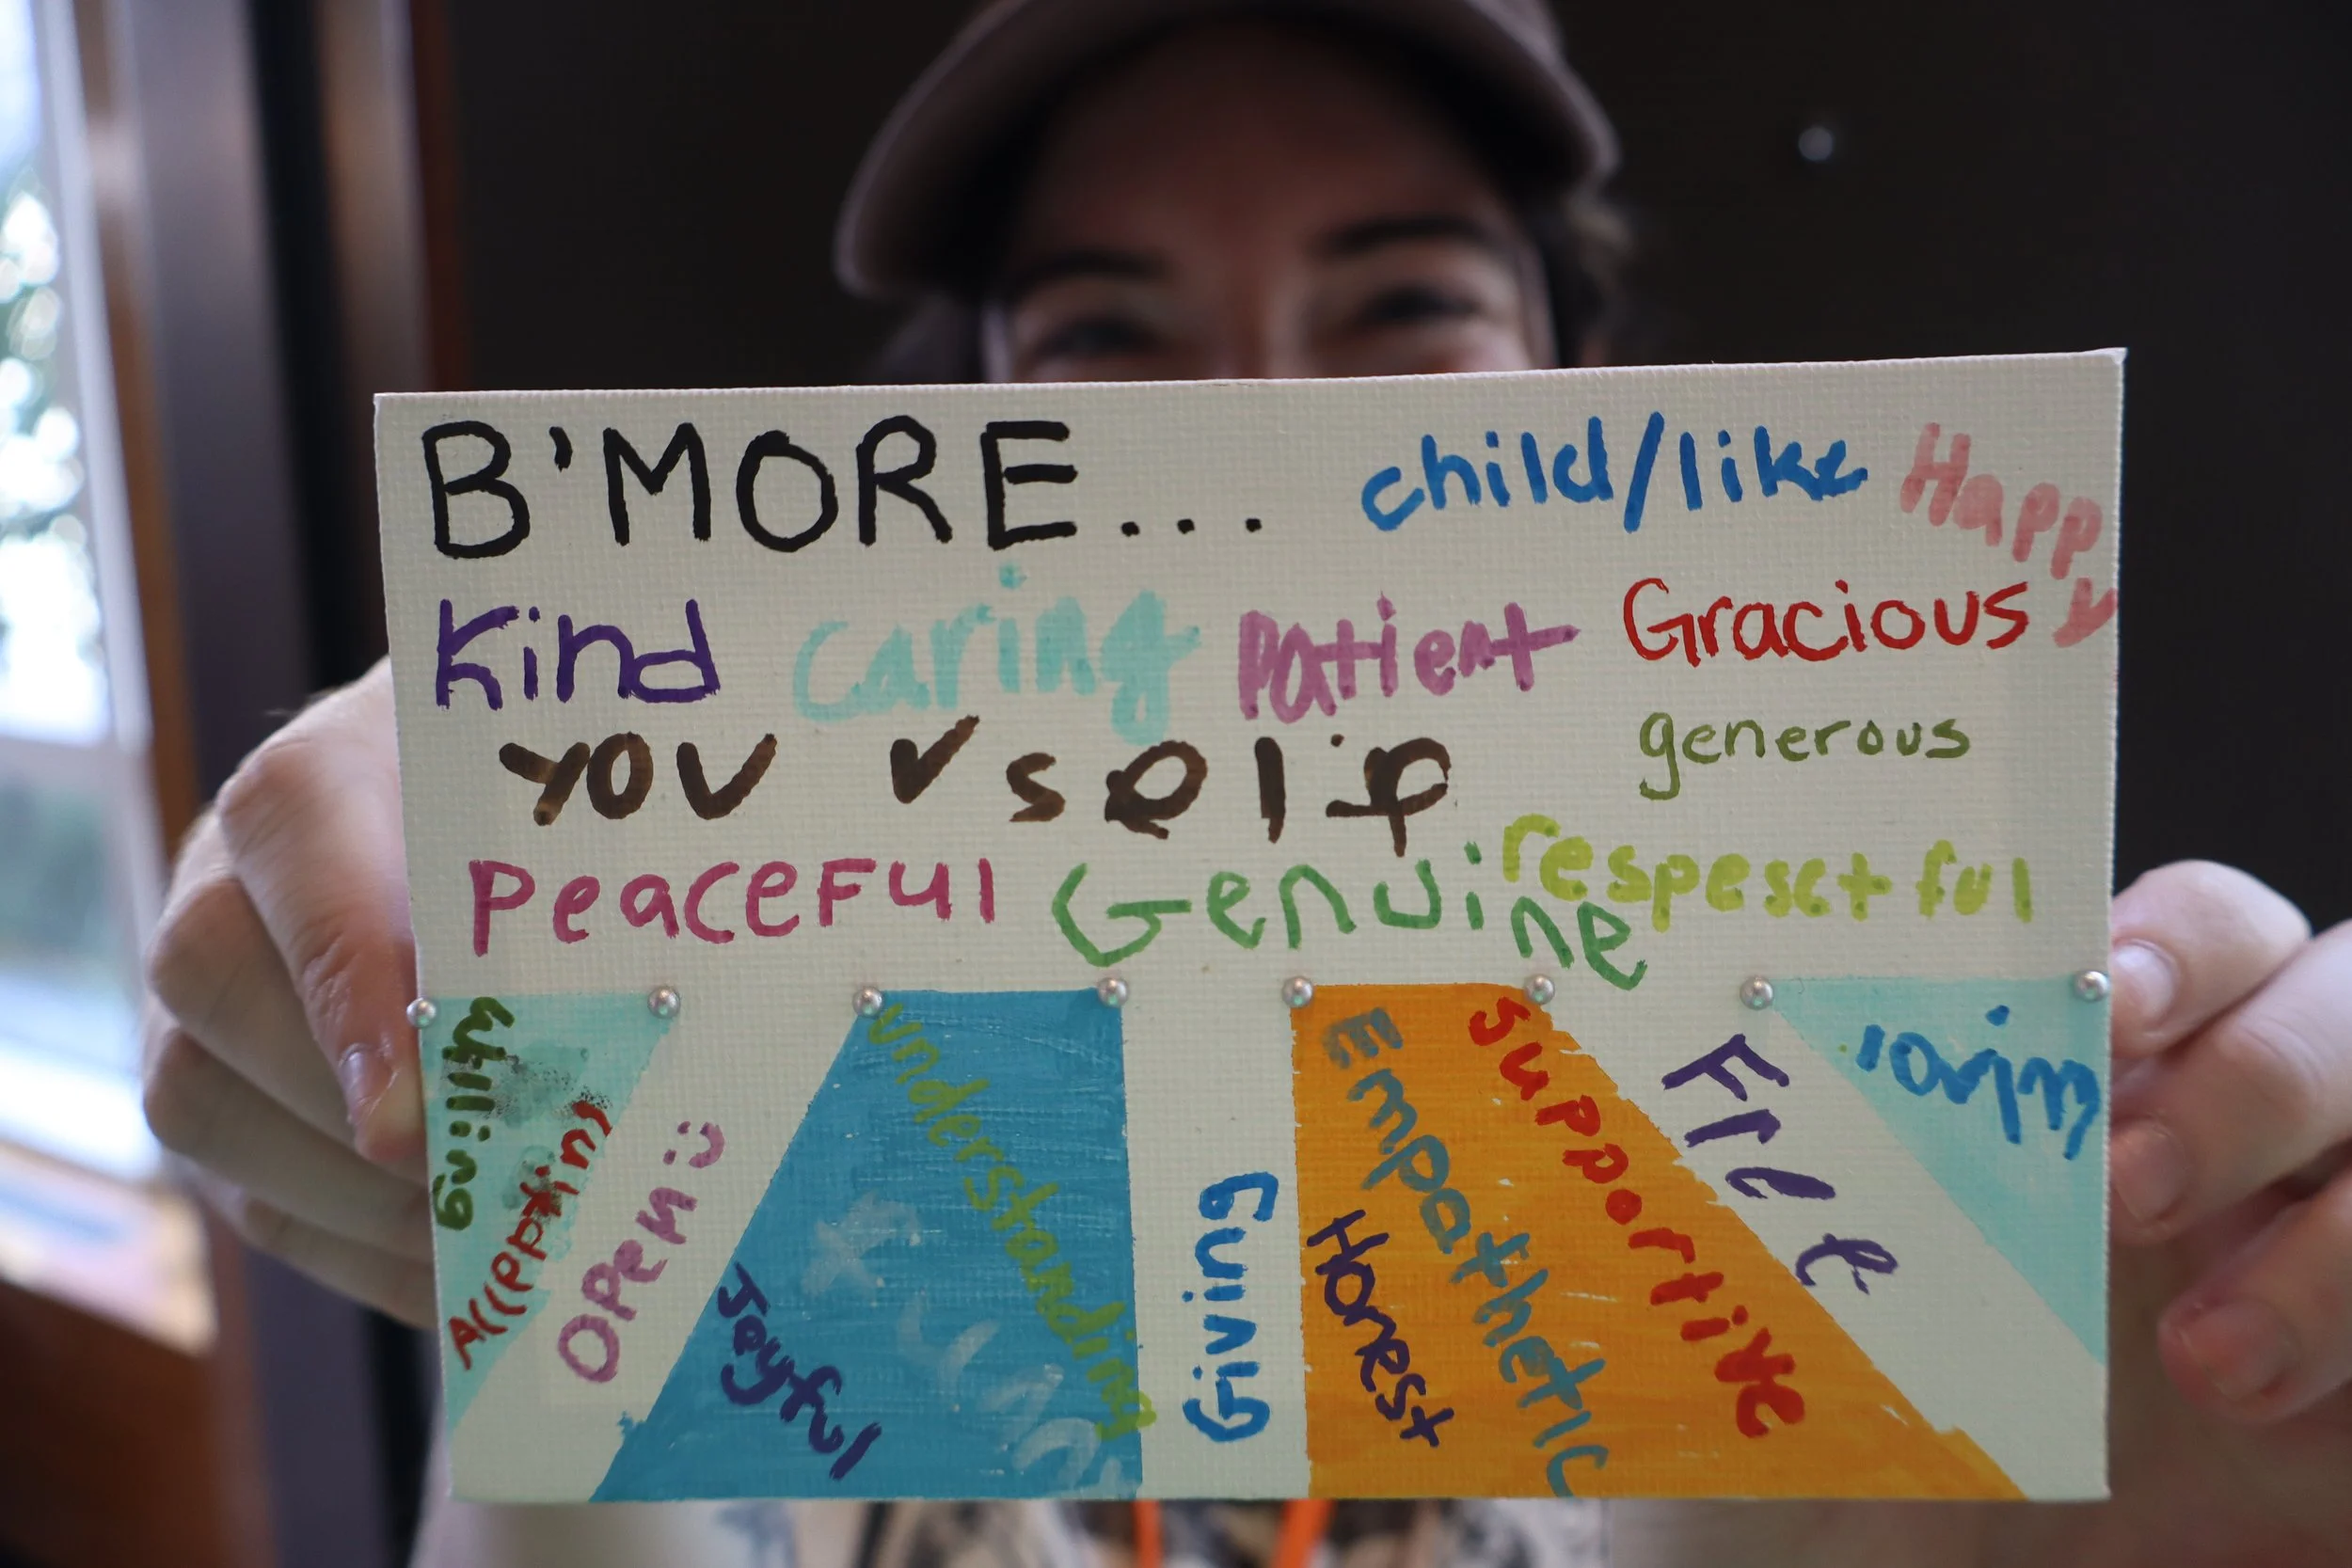 B'MORE... child/like Happy
Kind caring Patient Gracious
you rself generous
Peaceful Genuine respesctful
Willing
Accepting
Open :)
Joeyful
understanding
Giving
Honest
Empathetic
supportive
Free